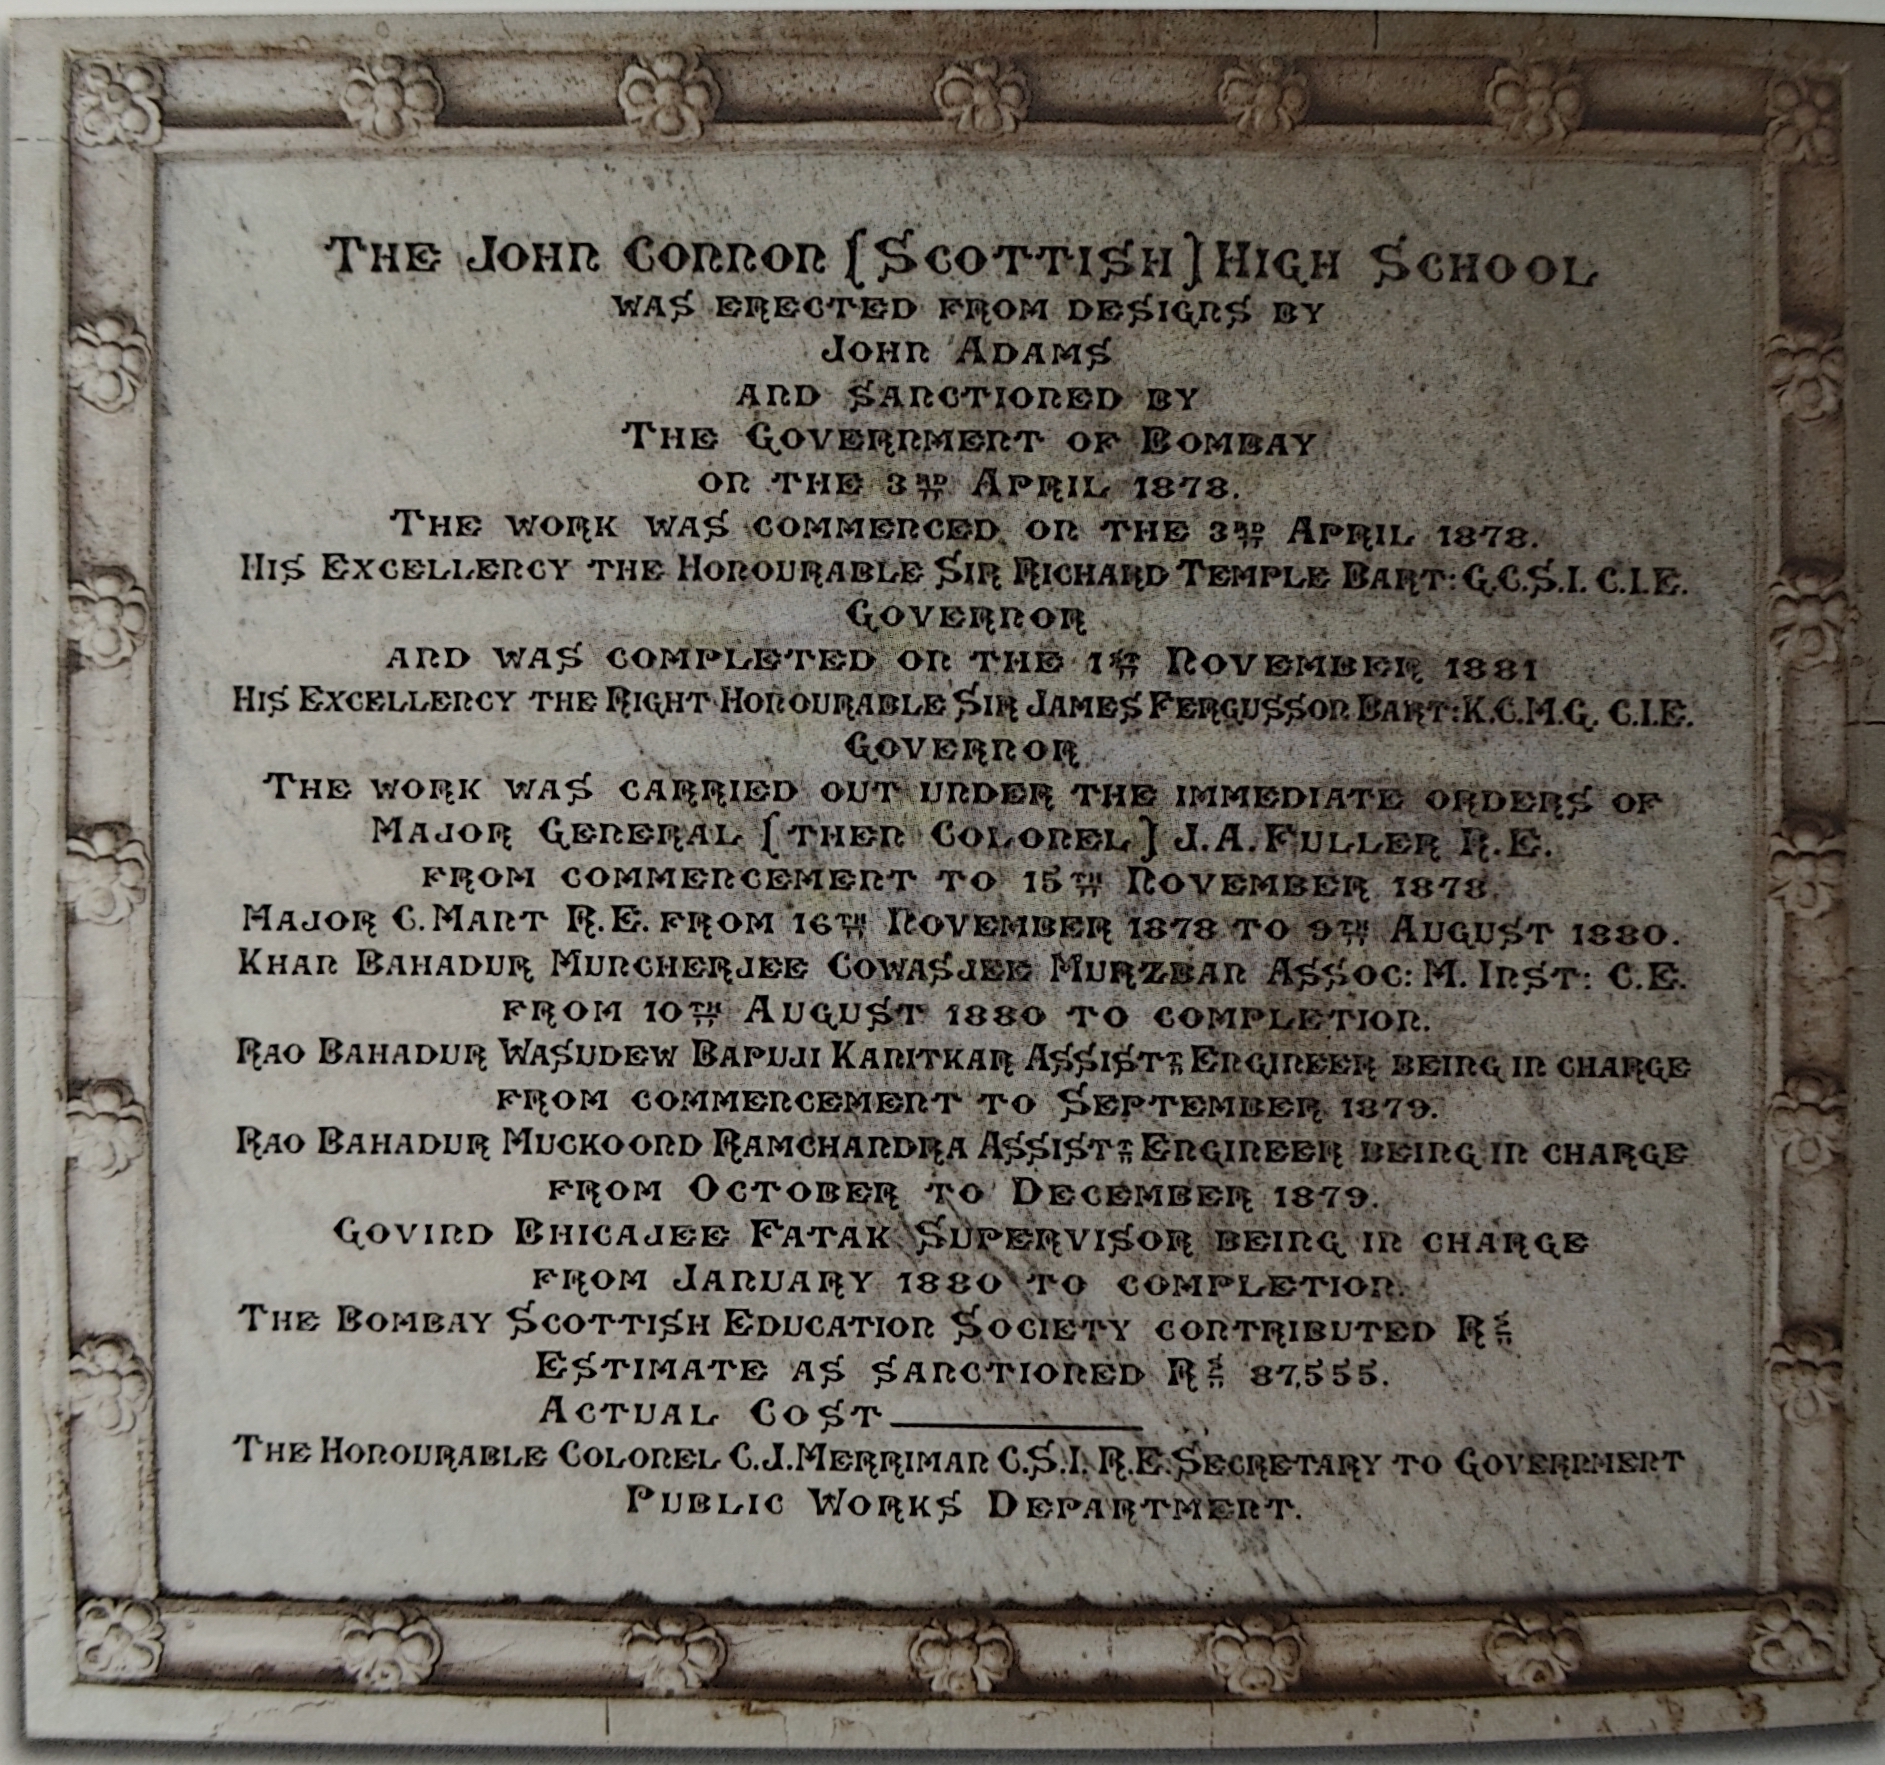 The John Connon [Scottish] High School
was erected from designs by
John Adams
and sanctioned by
The Government of Bombay
on the 3RD April 1878.
The work was commenced on the 3RD April 1878.
His Excellency the Honourable Sir Richard Temple Bart: G.C.S.I. C.I.E.
Governor
and was completed on the 1ST November 1881
His Excellency the Right Honourable Sir James Fergusson Bart: K.C.M.G. C.I.E.
Governor
The work was carried out under the immediate orders of
Major General [then Colonel] J.A. Fuller R.E.
from commencement to 15TH November 1878.
Major C. Mant R.E. from 16TH November 1878 to 9TH August 1880.
Khan Bahadur Muncherjee Cowasjee Murzban Assoc: M. Inst: C.E.
from 10TH August 1880 to completion.
Rao Bahadur Wasudew Bapuji Kanitkar Assistt Engineer being in charge
from commencement to September 1879.
Rao Bahadur Muckoond Ramchandra Assistt Engineer being in charge
from October to December 1879.
Govind Bhicajee Fatak Supervisor being in charge
from January 1880 to completion.
The Bombay Scottish Education Society contributed Rs
Estimate as sanctioned Rs 87,555.
Actual Cost
The Honourable Colonel C.J. Merriman C.S.I. R.E. Secretary to Government
Public Works Department.